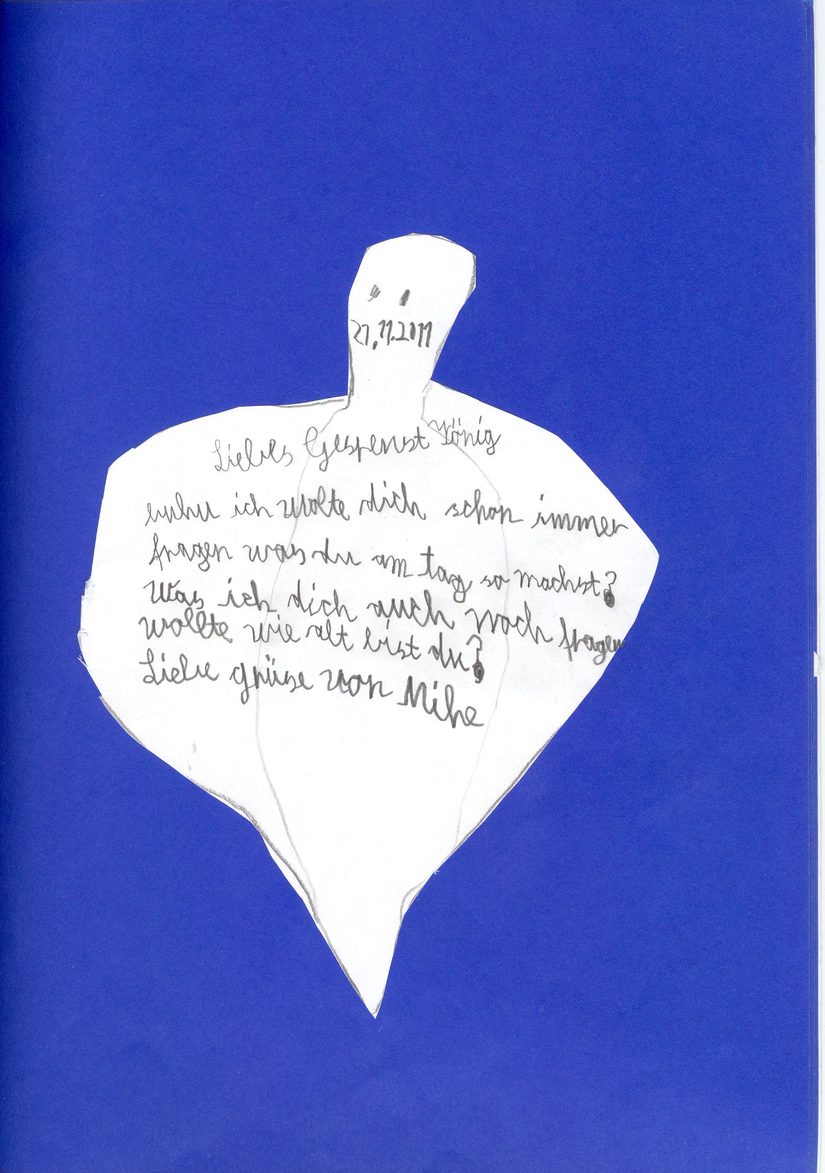 21.11.2011
Liebes Gespenst König
huhu ich wolte dich schon immer
fragen was du am tag so machst?
Was ich dich auch noch fragen
wollte wie alt bist du?
Liebe grüse von Mihe